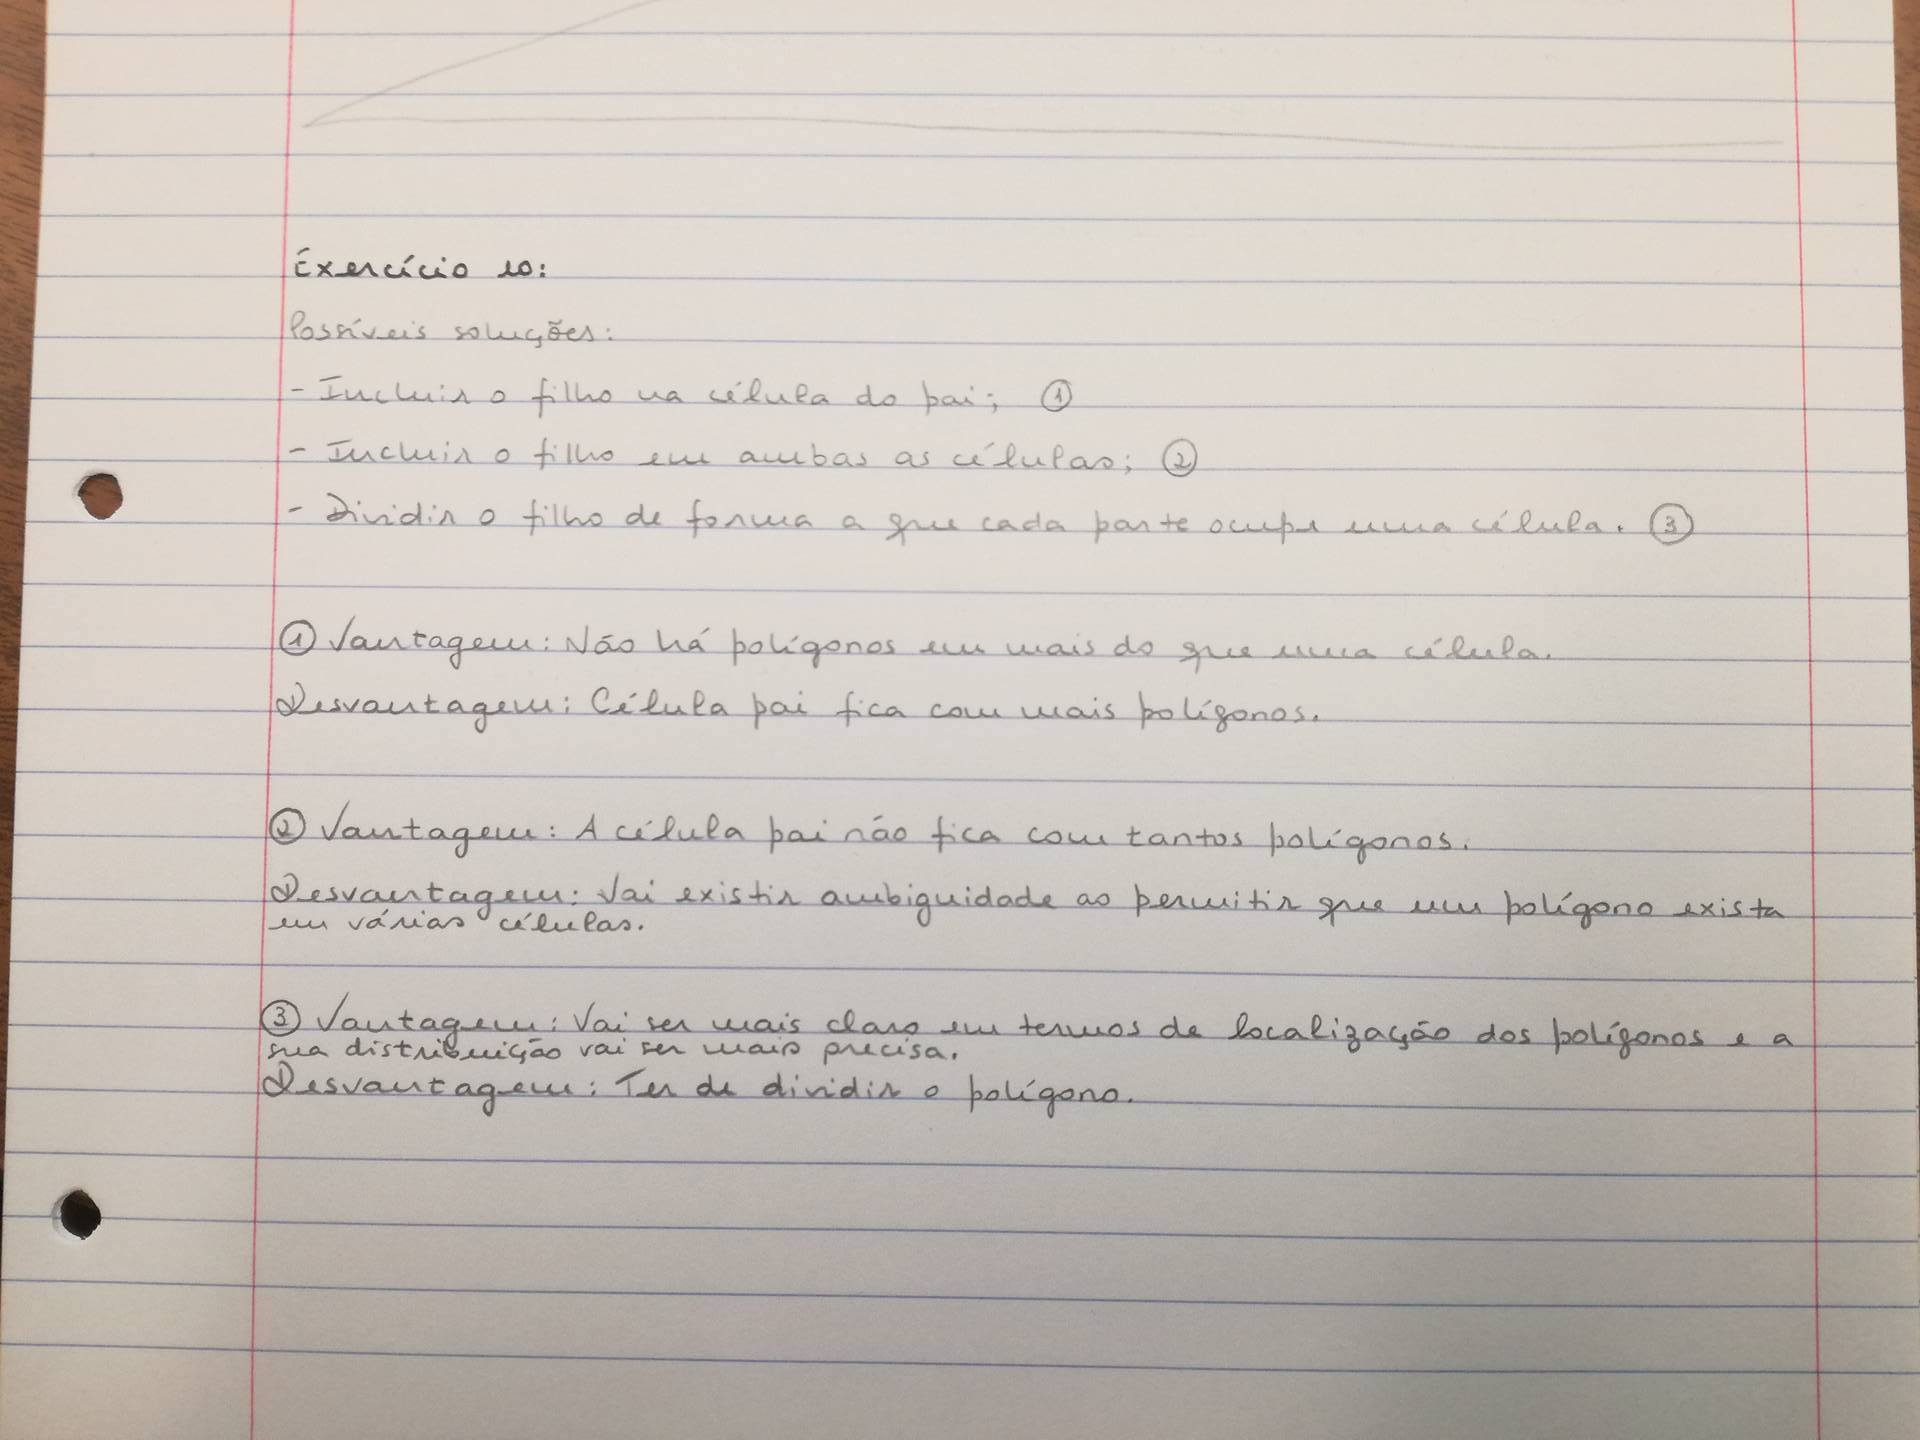 Exercício 10:
Possíveis soluções:
- Incluir o filho na célula do pai; ①
- Incluir o filho em ambas as células; ②
- Dividir o filho de forma a que cada parte ocupe uma célula. ③
① Vantagem: Não há polígonos em mais do que uma célula.
Desvantagem: Célula pai fica com mais polígonos.
② Vantagem: A célula pai não fica com tantos polígonos.
Desvantagem: Vai existir ambiguidade ao permitir que um polígono exista
em várias células.
③ Vantagem: Vai ser mais claro em termos de localização dos polígonos e a
sua distribuição vai ser mais precisa.
Desvantagem: Ter de dividir o polígono.